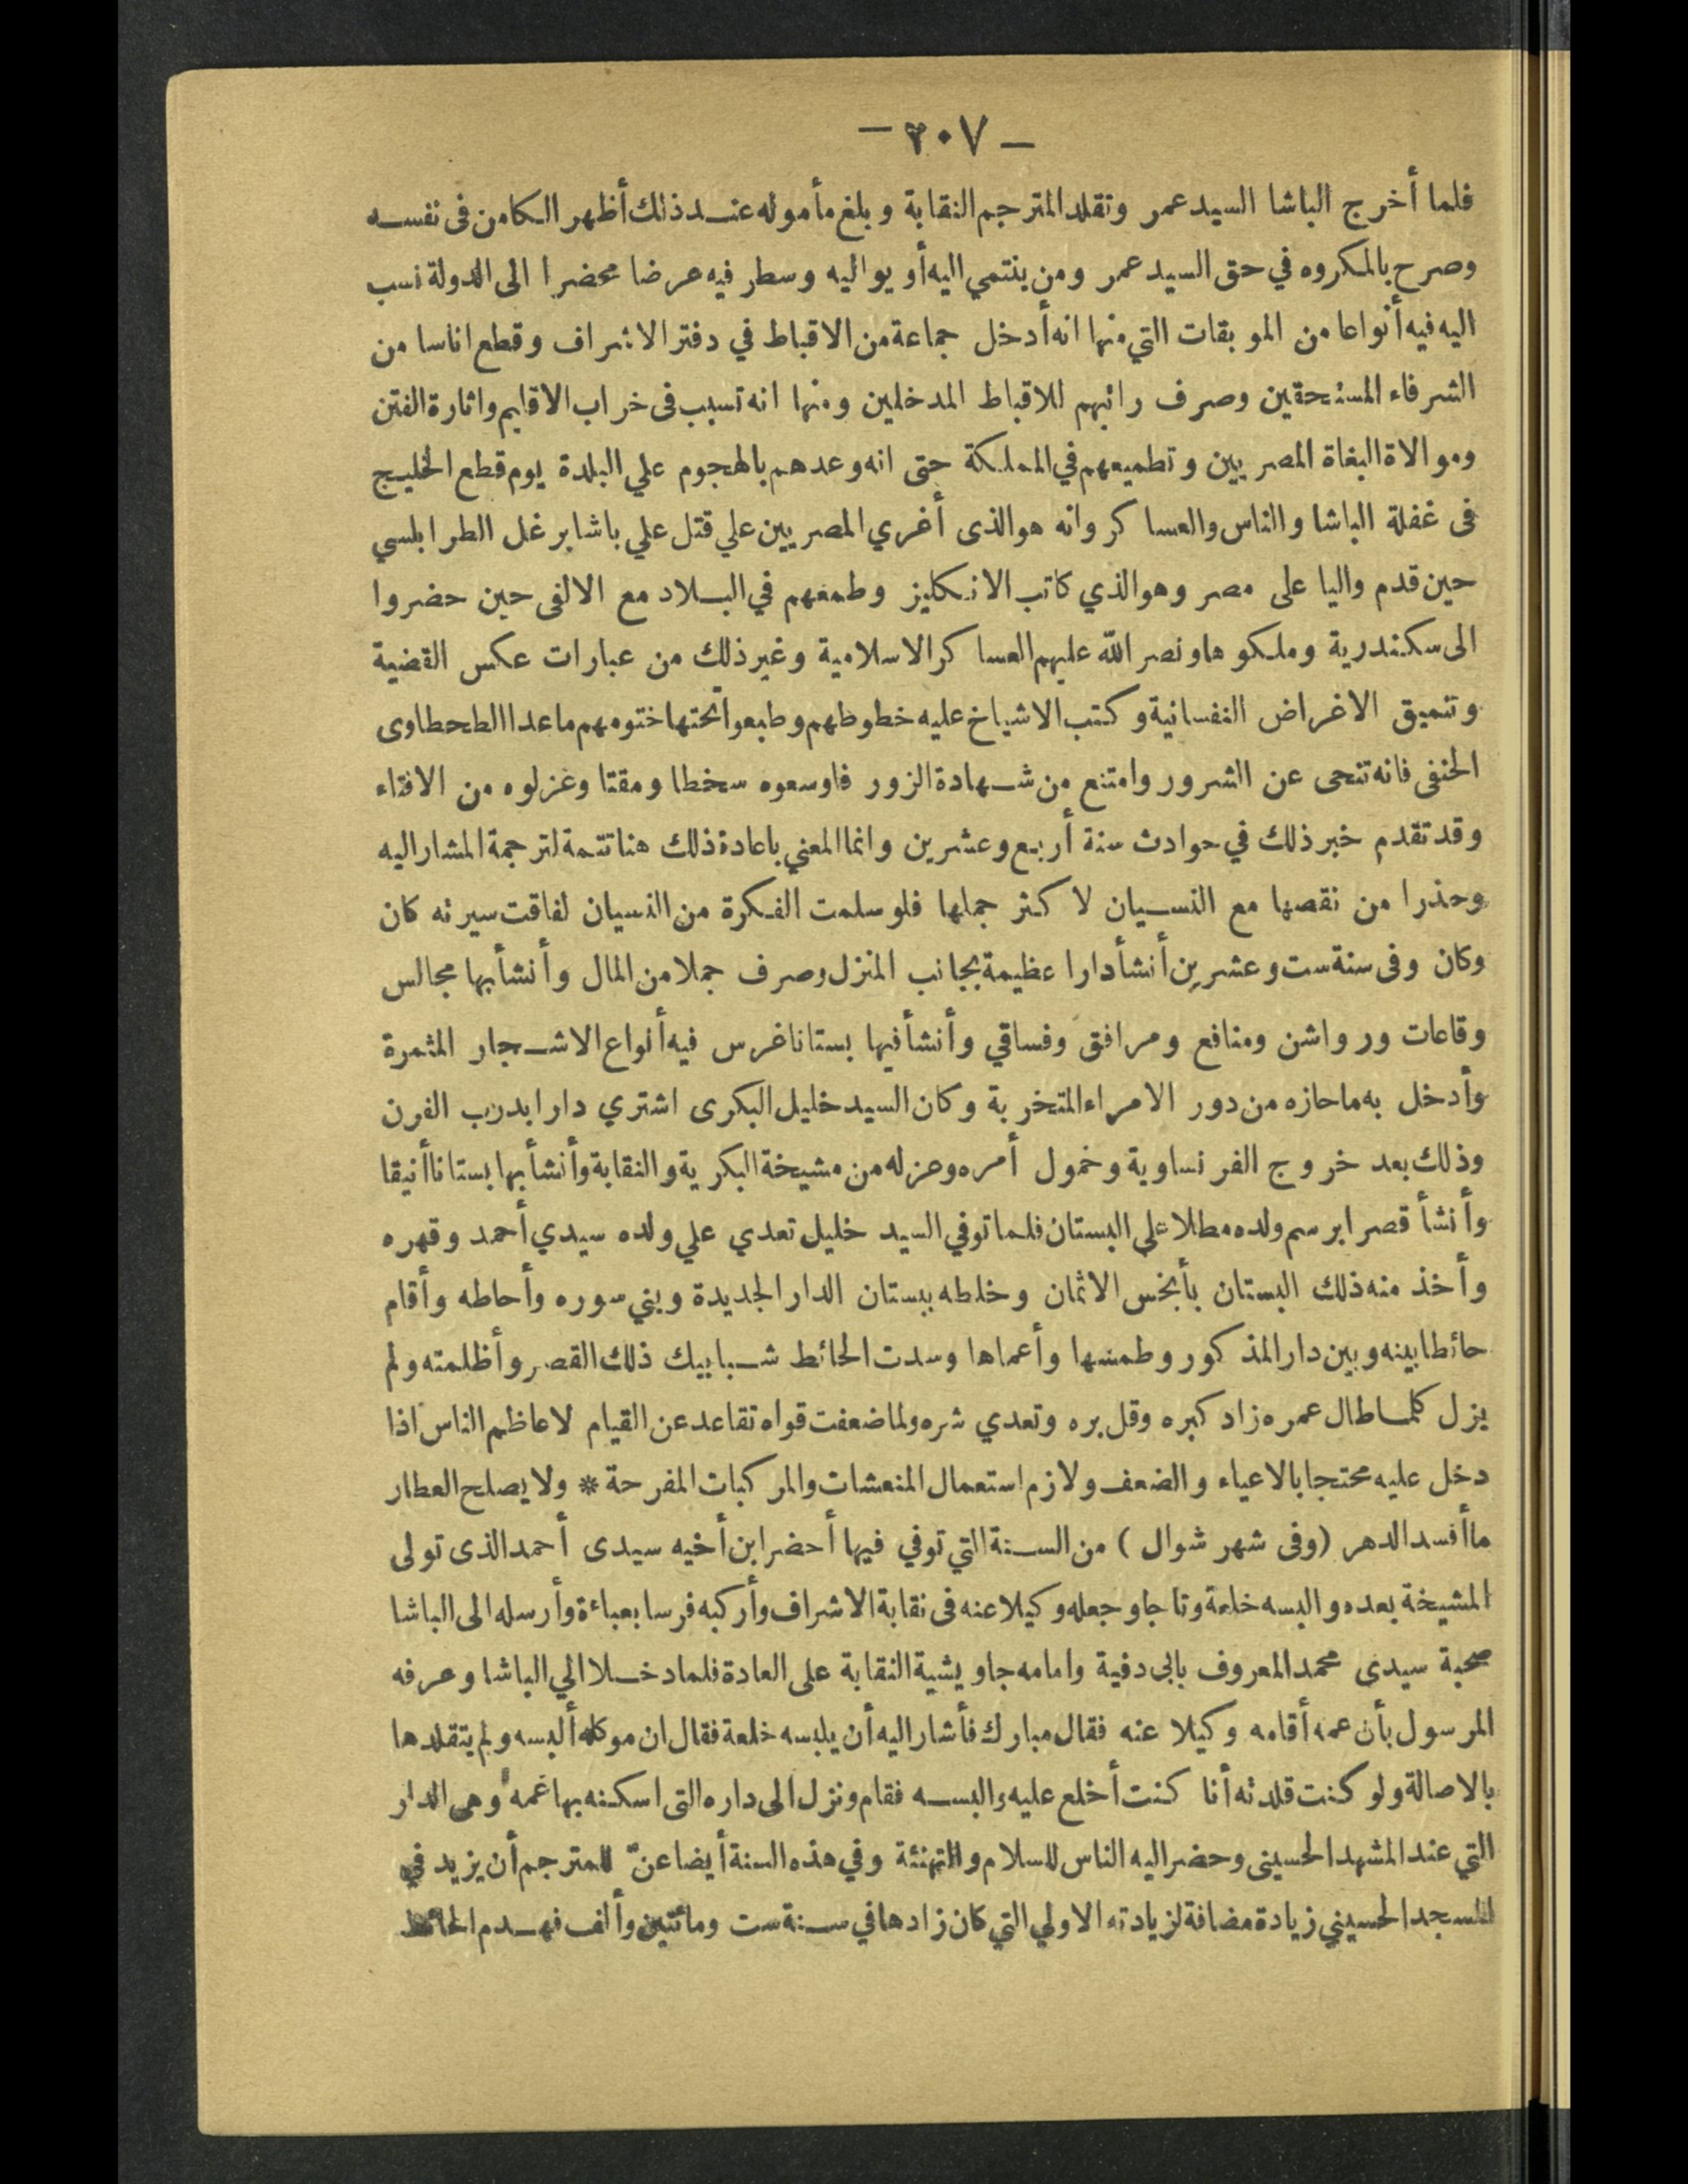 — ٢٠٧ —
فلما أخرج الباشا السيد عمر وتقلد المترجم النقابة وبلغ مأموله عند ذلك أظهر الكامن فى نفسه
وصرح بالمكروه في حق السيد عمر ومن ينتمي اليه أو يواليه وسطر فيه عرضا محضرا الى الدولة نسب
اليه فيه أنواعا من الموبقات التي منها انه أدخل جماعة من الاقباط في دفتر الاشراف وقطع اناسا من
الشرفاء المستحقين وصرف راتبهم للاقباط المدخلين ومنها انه تسبب فى خراب الاقليم واثارة الفتن
وموالاة البغاة المصريين وتطميعهم في المملكة حتى انه وعدهم بالهجوم علي البلدة يوم قطع الخليج
فى غفلة الباشا والناس والعساكر وانه هو الذى أغري المصريين علي قتل علي باشا برغل الطرابلسي
حين قدم واليا على مصر وهو الذي كاتب الانكليز وطمعهم في البلاد مع الالفى حين حضروا
الى سكندرية وملكوها ونصر الله عليهم العساكر الاسلامية وغير ذلك من عبارات عكس القضية
وتنميق الاغراض النفسانية وكتب الاشياخ عليه خطوطهم وطبعوا تحتها ختومهم ماعدا الطحطاوى
الحنفى فانه تنحى عن الشرور وامتنع من شهادة الزور فاوسعوه سخطا ومقتا وعزلوه من الافتاء
وقد تقدم خبر ذلك في حوادث سنة أربع وعشرين وانما المعني باعادة ذلك هنا تتمة لترجمة المشار اليه
وحذرا من نقصها مع النسيان لا كثر جملها فلو سلمت الفكرة من النسيان لفاقت سيرته كان
وكان وفى سنة ست وعشرين أنشأ دارا عظيمة بجانب المنزل وصرف جملا من المال وأنشأ بها مجالس
وقاعات ورواشن ومنافع ومرافق وفساقي وأنشأ فيها بستانا غرس فيه أنواع الاشجار المثمرة
وأدخل به ماحازه من دور الامراء المتخربة وكان السيد خليل البكرى اشتري دارا بدرب الفرن
وذلك بعد خروج الفرنساوية وخمول أمره وعزله من مشيخة البكرية والنقابة وأنشأ بها بستانا أنيقا
وأنشأ قصرا برسم ولده مطلا على البستان فلما توفي السيد خليل تعدي علي ولده سيدي أحمد وقهره
وأخذ منه ذلك البستان بأبخس الاثمان وخلطه ببستان الدار الجديدة وبني سوره وأحاطه وأقام
حائطا بينه وبين دار المذكور وطمسها وأعماها وسدت الحائط شبابيك ذلك القصر وأظلمته ولم
يزل كلما طال عمره زاد كبره وقل بره وتعدي شره ولما ضعفت قواه تقاعد عن القيام لاعاظم الناس اذا
دخل عليه محتجا بالاعياء والضعف ولازم استعمال المنعشات والمركبات المفرحة * ولا يصلح العطار
ما أفسد الدهر (وفى شهر شوال ) من السنة التي توفي فيها أحضر ابن أخيه سيدى أحمد الذى تولى
المشيخة بعده والبسه خلعة وتاجا وجعله وكيلا عنه فى نقابة الاشراف وأركبه فرسا بعباءة وأرسله الى الباشا
صحبة سيدى محمد المعروف بابى دفية وامامه جاويشية النقابة على العادة فلما دخلا الي الباشا وعرفه
المرسول بأن عمه أقامه وكيلا عنه فقال مبارك فأشار اليه أن يلبسه خلعة فقال ان موكله ألبسه ولم يتقلدها
بالاصالة ولو كنت قلدته أنا كنت أخلع عليه والبسه فقام ونزل الى داره التى اسكنه بها عمه وهى الدار
التي عند المشهد الحسينى وحضر اليه الناس للسلام والتهنئة وفي هذه السنة أيضا عنّ للمترجم أن يزيد في
المسجد الحسيني زيادة مضافة لزيادته الاولي التي كان زادها في سنة ست ومائتين وألف فهدم الحائط